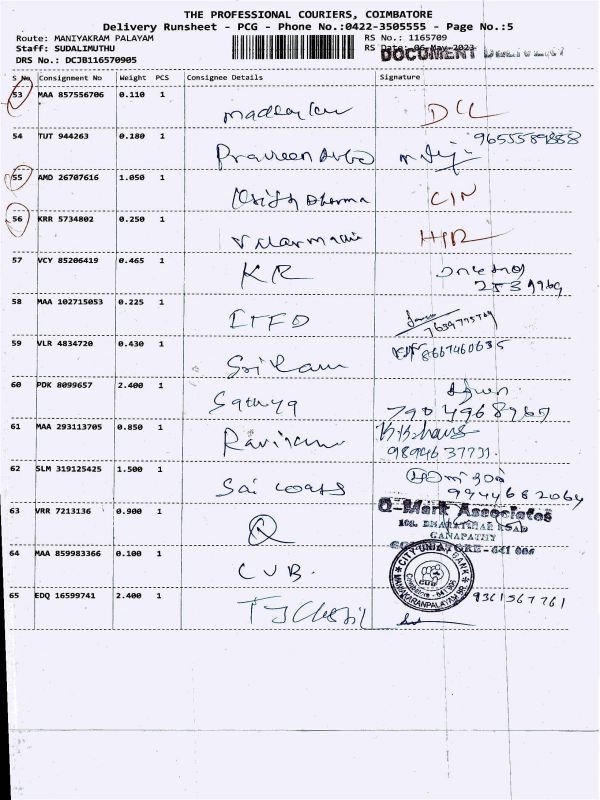 THE PROFESSIONAL COURIERS, COIMBATORE
Delivery Runsheet - PCG - Phone No.:0422-3505555 - Page No.:5
Route: MANIYAKRAM PALAYAM RS No.: 1165709
Staff: SUDALIMUTHU RS Date: 06-May-2023
DRS No.: DCJB116570905 DOCUMENT DELIVERY
S No Consignment No Weight PCS Consignee Details Signature
53 MAA 857556706 0.110 1
DCL
54 TUT 944263 0.180 1 9655589888
Praveen
55 AMD 26707616 1.050 1
Dharma CIN
56 KRR 5734802 0.250 1
HIR
57 VCY 85206419 0.465 1
KR
58 MAA 102715053 0.225 1
ITFD
59 VLR 4834720 0.430 1 8667460635
Sri Ram
60 PDK 8099657 2.400 1
Sathya 7904968967
61 MAA 293113705 0.850 1
Raviram 9894637731
62 SLM 319125425 1.500 1
Sai 9944682064
63 VRR 7213136 0.900 1 Q-Mark Associates
108, BHARATHIAR ROAD
GANAPATHY
64 MAA 859983366 0.100 1 COIMBATORE - 641 006
CUB. CITY UNION BANK
65 EDQ 16599741 2.400 1 9361567761